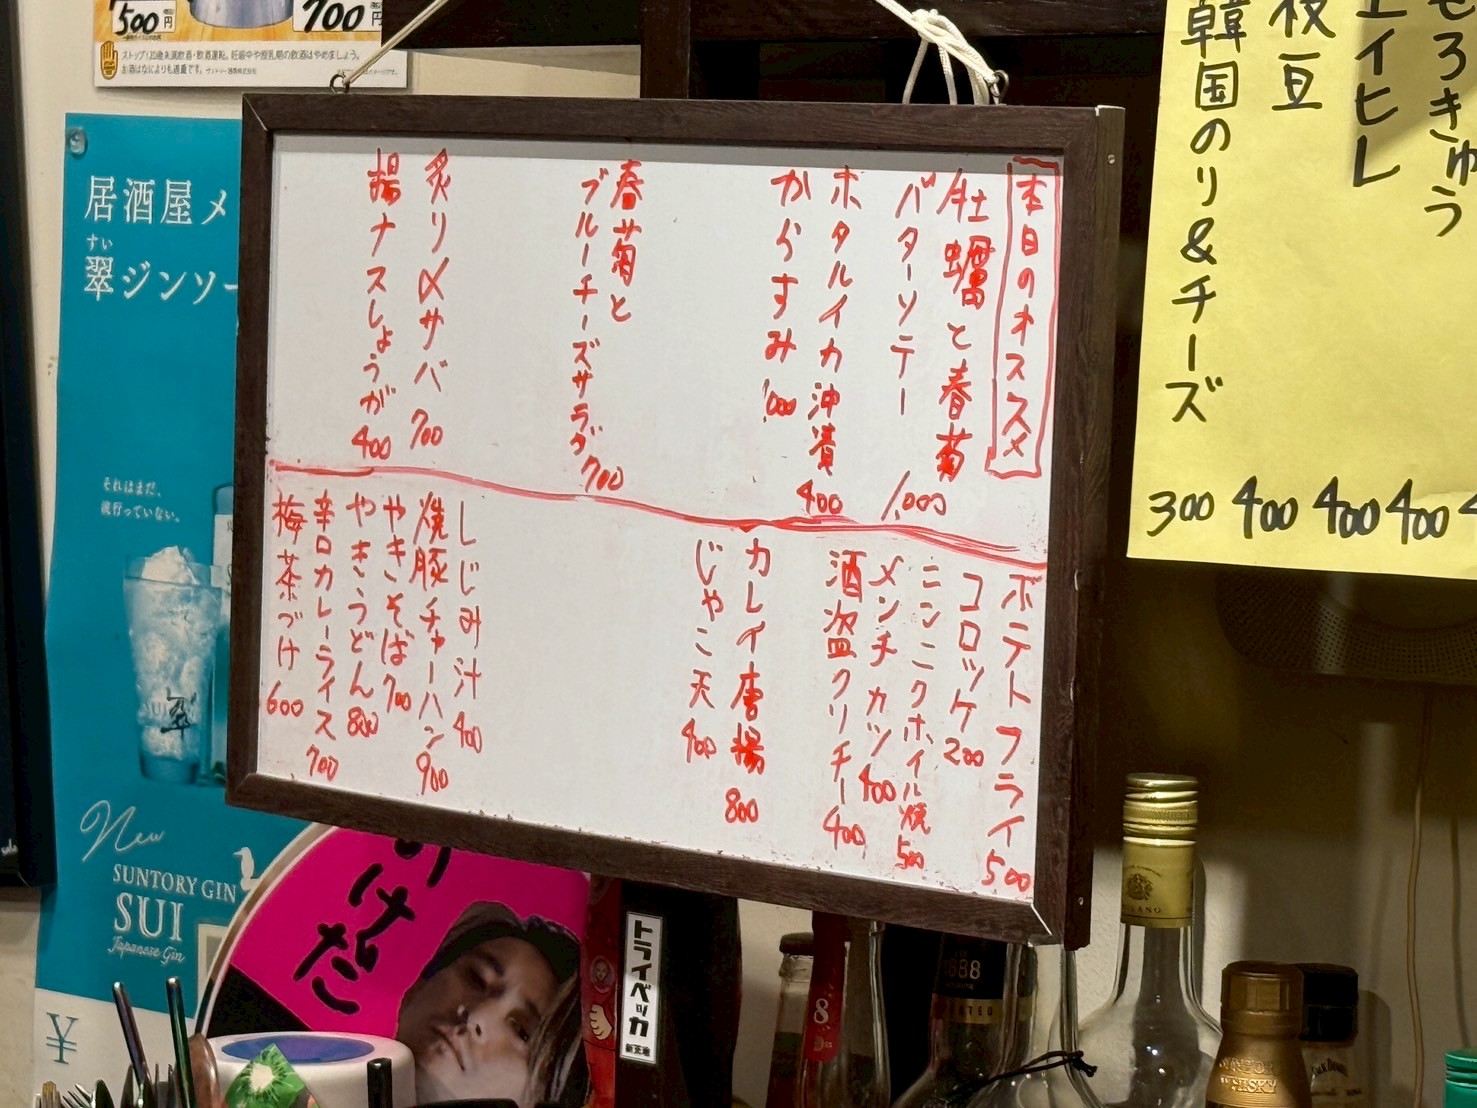 本日のオススメ
牡蠣と春菊
バターソテー 1,000
ホタルイカ沖漬 400
からすみ 1,000
春菊と
ブルーチーズサラダ 700
炙り〆サバ 700
揚ナスしょうが 400
ポテトフライ 500
コロッケ 200
ニンニクホイル焼 500
メンチカツ 400
酒盗クリチー 400
カレイ唐揚 800
じゃこ天 400
しじみ汁 400
焼豚チャーハン 900
やきそば 700
やきうどん 800
辛口カレーライス 700
梅茶づけ 600
もろきゅう
エイヒレ 400
枝豆 400
韓国のり&チーズ 300
400
500円
700円
ストップ!20歳未満飲酒・飲酒運転。妊娠中や授乳期の飲酒はやめましょう。
居酒屋メ
すい
翠ジンソー
それはまだ、
流行っていない。
翠
New
SUNTORY GIN
SUI
Japanese Gin
¥
けだ
トライベッカ
8
1888